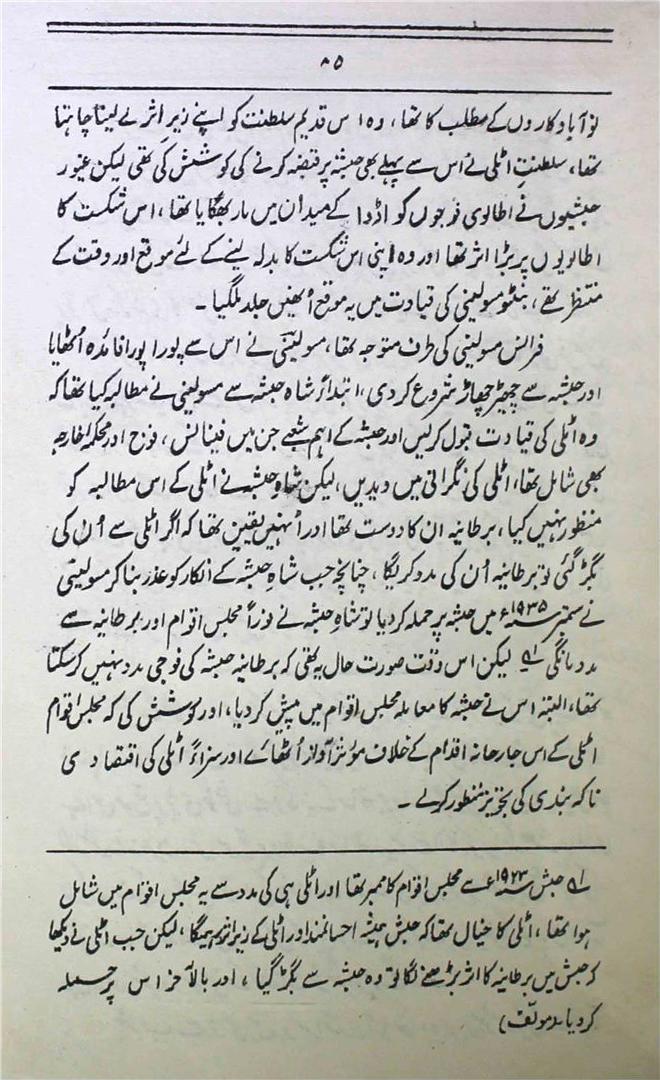 ۸۵
نوآبادکاروں کے مطلب کا تھا، وہ اس قدیم سلطنت کو اپنے زیر اثر لے لینا چاہتا
تھا، سلطنتِ اٹلی نے اُس سے پہلے بھی حبشہ پر قبضہ کرنے کی کوشش کی تھی لیکن غیور
حبشیوں نے اطالوی فوجوں کو اڈوا کے میدان میں مار بھگایا تھا، اس شکست کا
اطالویوں پر بڑا اثر تھا اور وہ اپنی اس شکست کا بدلہ لینے کے لئے موقع اور وقت کے
منتظر تھے، بنٹو مسولینی کی قیادت میں یہ موقع اُنھیں جلد ملگیا۔
فرانس مسولینی کی طرف متوجہ تھا، مسولینی نے اس سے پورا پورا فائدہ اُٹھایا
اور حبشہ سے چھیڑ چھاڑ شروع کر دی، ابتداءً شاہ حبشہ سے مسولینی نے مطالبہ کیا تھا کہ
وہ اٹلی کی قیادت قبول کرلیں اور حبشہ کے اہم شعبے جن میں فینانس، فوج اور محکمۂ خارجہ
بھی شامل تھا، اٹلی کی نگرانی میں دیدیں، لیکن شاہِ حبشہ نے اٹلی کے اس مطالبہ کو
منظور نہیں کیا، برطانیہ ان کا دوست تھا اور اُنہیں یقین تھا کہ اگر اٹلی سے اُن کی
بگڑ گئی تو برطانیہ اُن کی مدد کریگا، چنانچہ جب شاہِ حبشہ کے انکار کو عذر بنا کر مسولینی
نے ستمبر ۱۹۳۵ء میں حبشہ پر حملہ کر دیا تو شاہِ حبشہ نے فوراً مجلس اقوام اور برطانیہ سے
مدد مانگی ؎۱ لیکن اس وقت صورت حال یہ تھی کہ برطانیہ حبشہ کی فوجی مدد نہیں کر سکتا
تھا، البتہ اس نے حبشہ کا معاملہ مجلس اقوام میں پیش کر دیا، اور کوشش کی کہ مجلس اقوام
اٹلی کے اس جارحانہ اقدام کے خلاف مؤثر آواز اُٹھائے اور سزاءً اٹلی کی اقتصادی
ناکہ بندی کی تجویز منظور کرلے۔
؎۱ حبش ۱۹۲۳ء سے مجلس اقوام کا ممبر تھا اور اٹلی ہی کی مدد سے یہ مجلس اقوام میں شامل
ہوا تھا، اٹلی کا خیال تھا کہ حبش ہمیشہ احسانمند اور اٹلی کے زیر اثر رہیگا، لیکن جب اٹلی نے دیکھا
کہ حبش میں برطانیہ کا اثر بڑھنے لگا تو وہ حبشہ سے بگڑ گیا، اور بالآخر اس پر حملہ
کر دیا۔ (مولف)